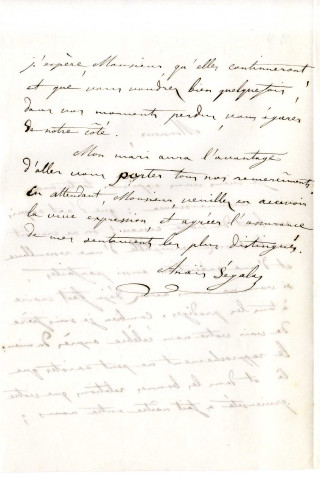 j'espère, Monsieur, qu'elles continueront
et que vous voudrez bien quelquefois,
dans vos moments perdus, vous égarer
de notre côté.
Mon mari aura l'avantage
d'aller vous porter tous nos remerciements
en attendant, Monsieur, veuillez en recevoir
la vive expression, et agréer l'assurance
de mes sentiments les plus distingués.
Anaïs Ségalas